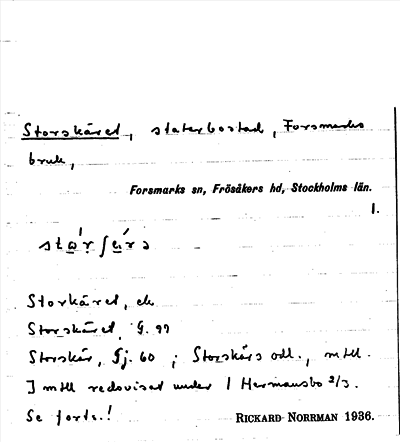 Storskäret, statarbostad, Forsmarks
bruk,
Forsmarks sn, Frösåkers hd, Stockholms län.
1.
Storskäret, ek
Storskäret, G. 97
Storskär, Gj. 60 ; Storskärs odl., mtll.
I mtll redovisat under 1 Hermansbo 2/3.
Se forts.!
RICKARD NORRMAN 1936.